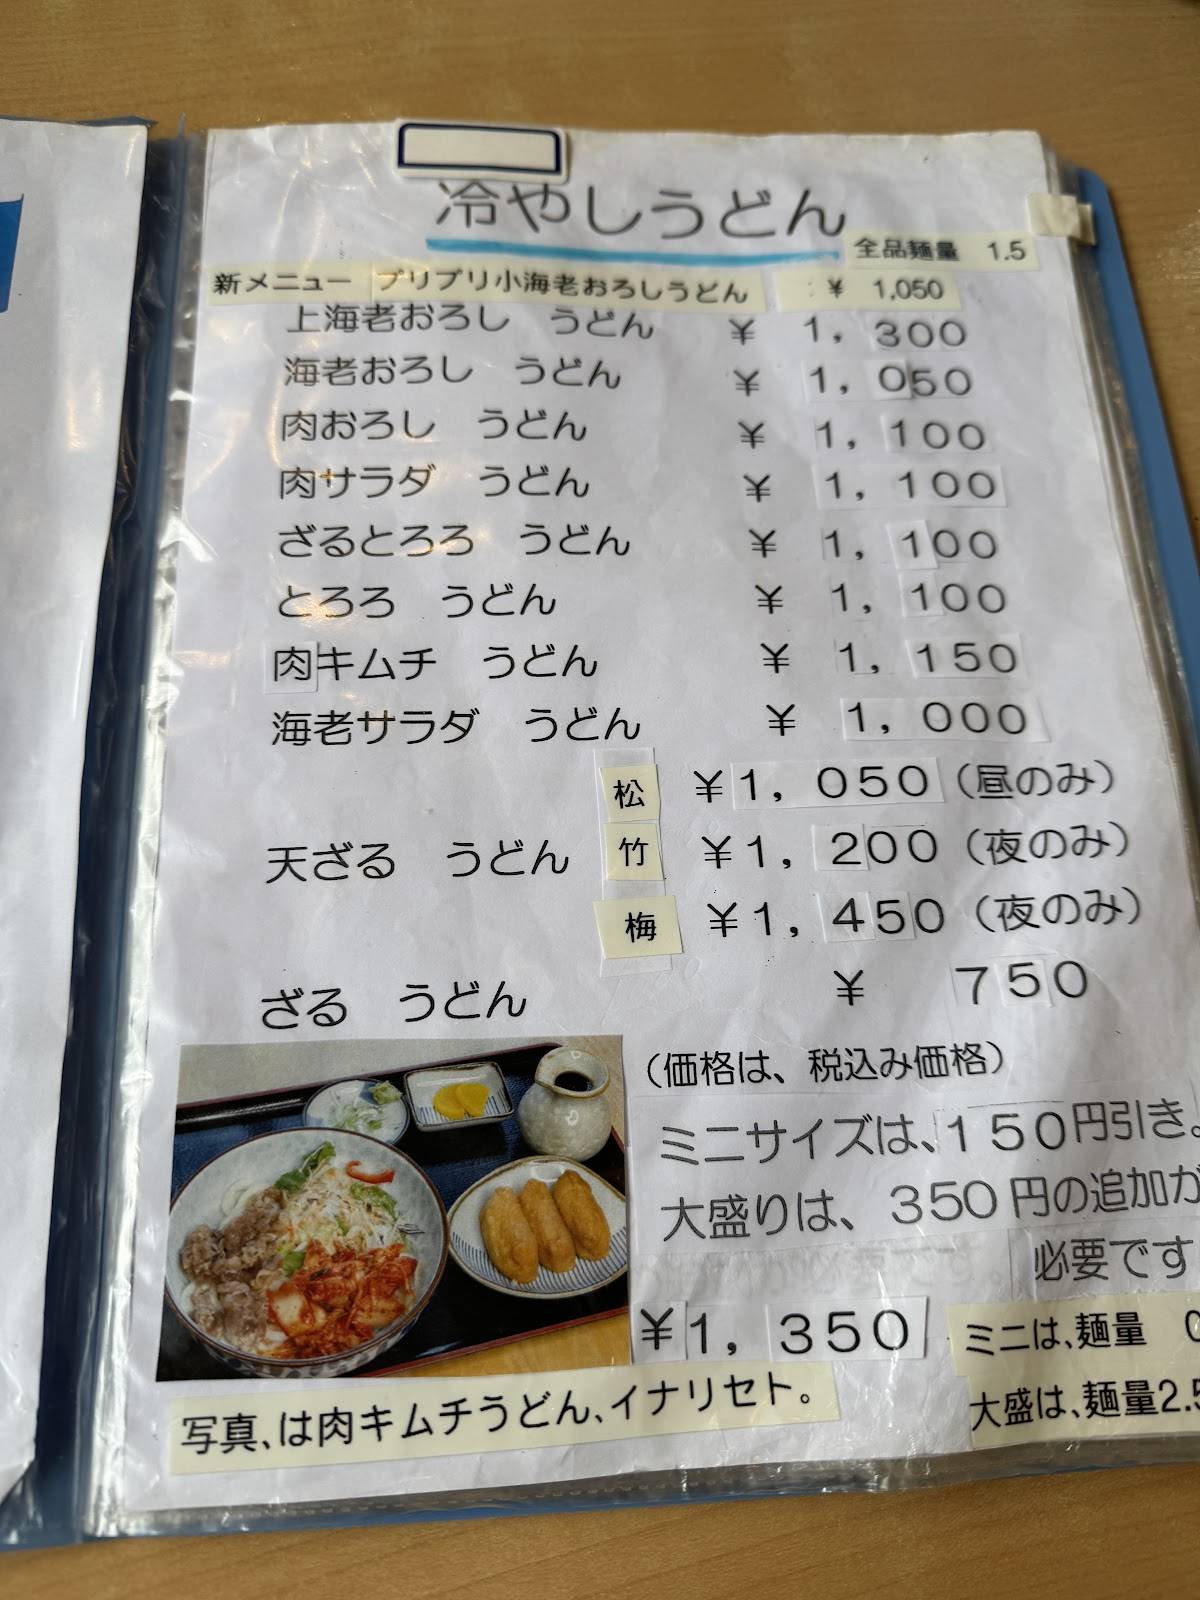 冷やしうどん
全品麺量 1.5
新メニュー プリプリ小海老おろしうどん ¥ 1,050
上海老おろし うどん ¥ 1,300
海老おろし うどん ¥ 1,050
肉おろし うどん ¥ 1,100
肉サラダ うどん ¥ 1,100
ざるとろろ うどん ¥ 1,100
とろろ うどん ¥ 1,100
肉キムチ うどん ¥ 1,150
海老サラダ うどん ¥ 1,000
松 ¥1,050(昼のみ)
天ざる うどん 竹 ¥1,200(夜のみ)
梅 ¥1,450(夜のみ)
ざる うどん ¥ 750
(価格は、税込み価格)
ミニサイズは、150円引き。
大盛りは、350円の追加が
必要です
¥1,350
ミニは、麺量
大盛は、麺量2.5
写真、は肉キムチうどん、イナリセト。